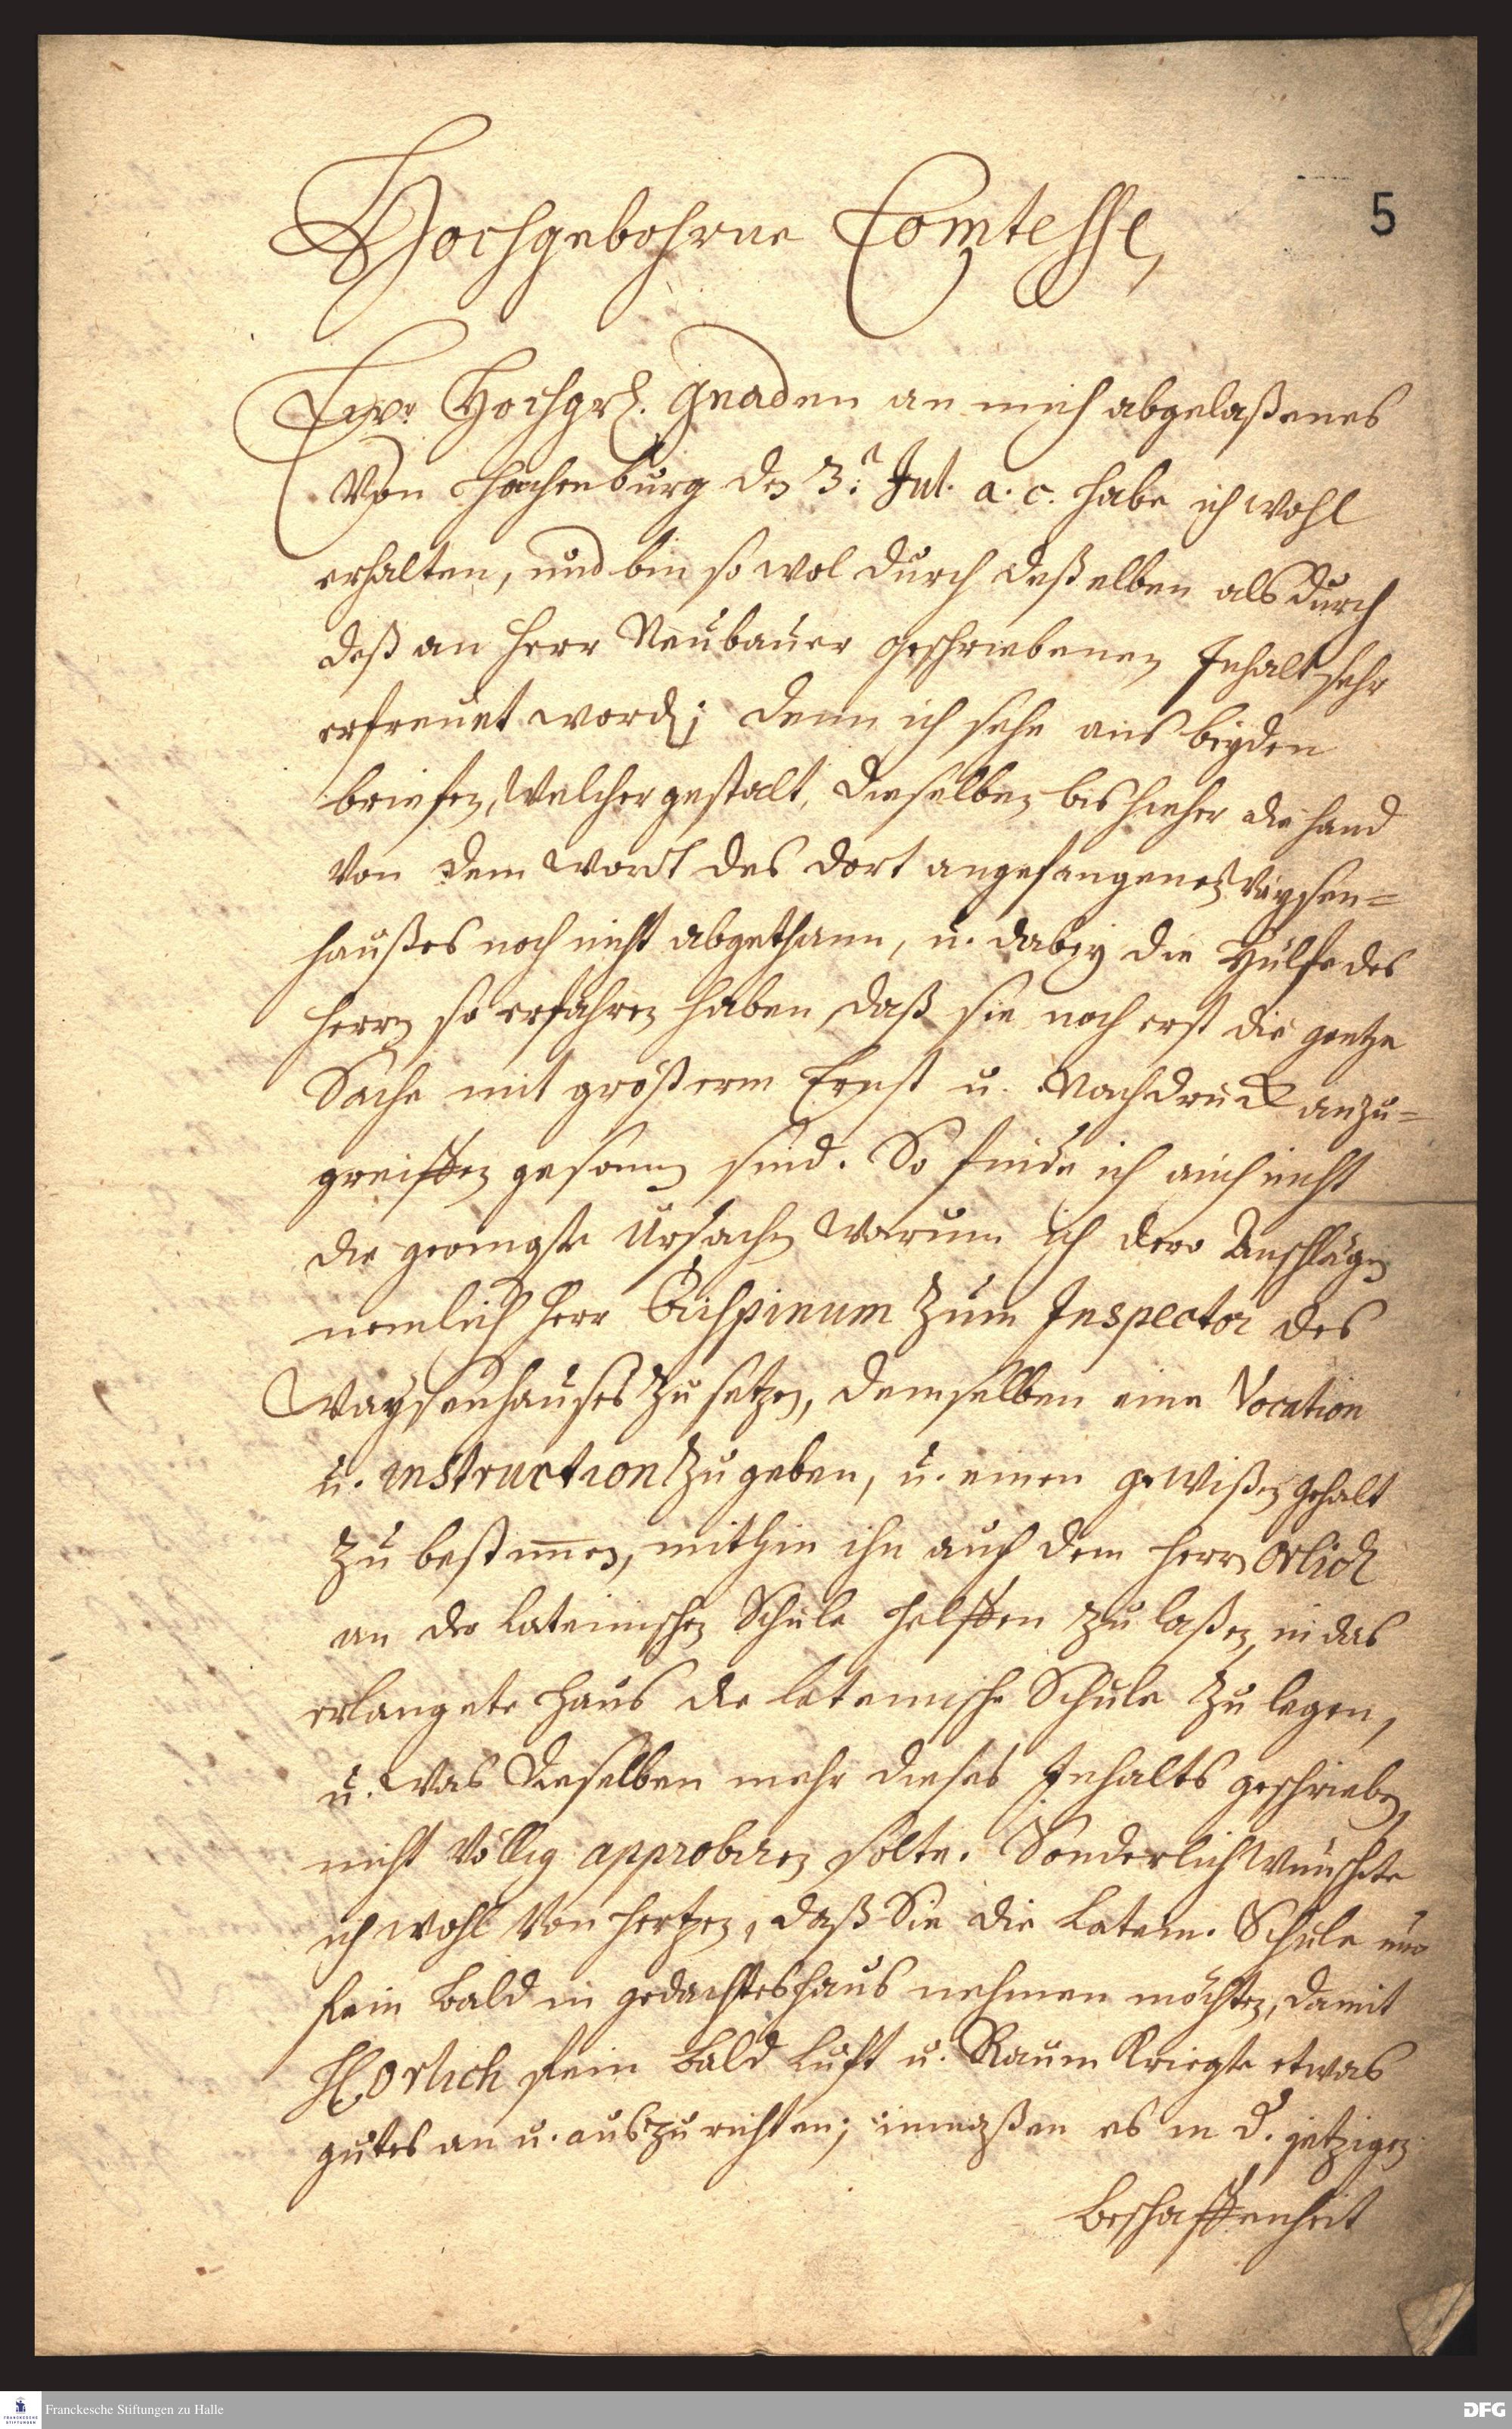 5
Hochgebohrne Comtesse,
Ewr. Hochgrl. Gnaden an mich abgelaßenes
Von Hachenburg den 3. Jul. a. c. habe ich wohl
erhalten, und bin so wol durch deßelben als durch
deß an Herr Neubauer geschriebenen Inhalt sehr
erfreuet word; denn ich sehe aus beyden
briefen, Welcher gestalt, dieselben bis hieher die hand
Von dem des dort angefangenen Waysen=
haußes noch nicht abgethann, u. dabey die Hülfe des
Herrn so erfahren haben, daß sie noch erst die gantze
Sache mit größerm Ernst u. Nachdruck anzu=
greiffen gesonnen sind. So finde ich auch nicht
die geringste Ursachen warum ich dero Anschläge
nemlich Herr zum Inspector des
Waysenhauses zu setzen, demselben eine Vocation
u. instruction zu geben, u. einen gewißen gehalt
zu bestimmen, mithin ihn auch dem Herrn Orlich
an der Lateinischen Schule helffen zu laßen, in das
erlangete Haus die lateinische Schule zu legen,
u. was dieselben mehr dieses Inhalts geschrieben,
nicht völlig approbiren solte. Sonderlich wünschte
ich wohl von Hertzen, daß Sie die Latein. Schule nur
fein bald in gedachtes Haus nehmen möchten, damit
H. Orlich fein bald Luft u. Raum kriegte etwas
gutes an u. auszurichten; immaßen es in d. jetzigen
Beschaffenheit
Franckesche Stiftungen zu Halle
DFG